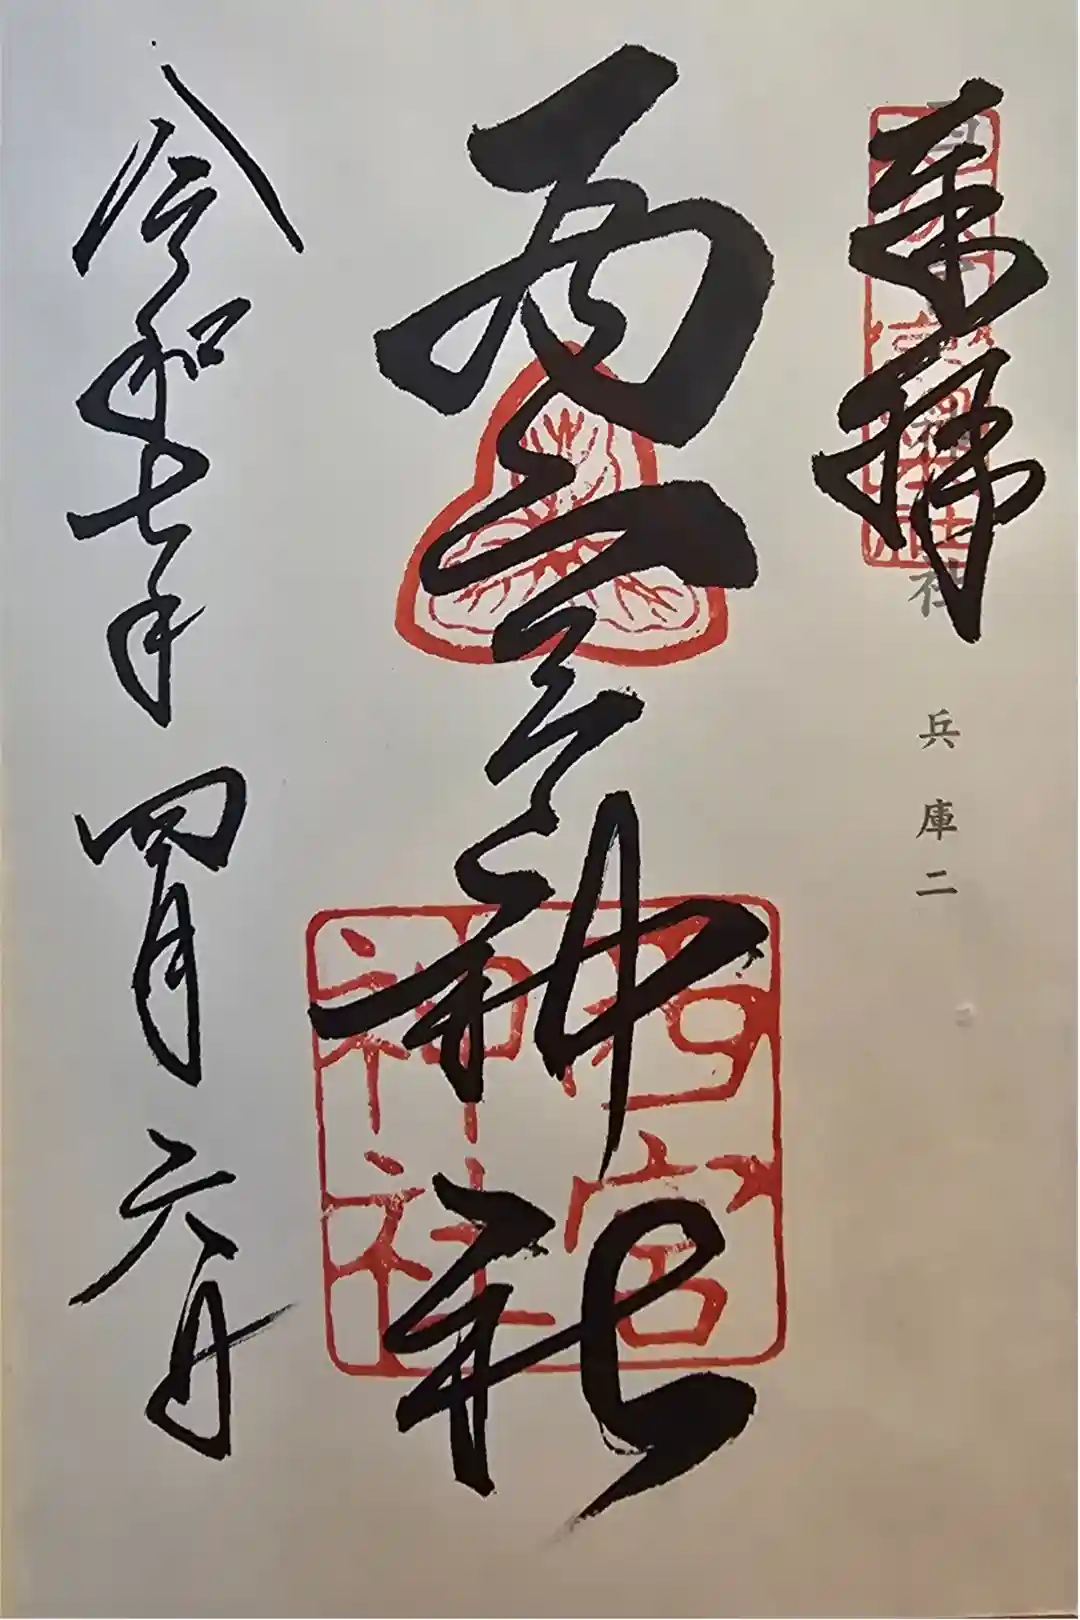 奉拝
西宮神社 兵庫二
西宮神社
西宮
神社
令和七年 四月 六日